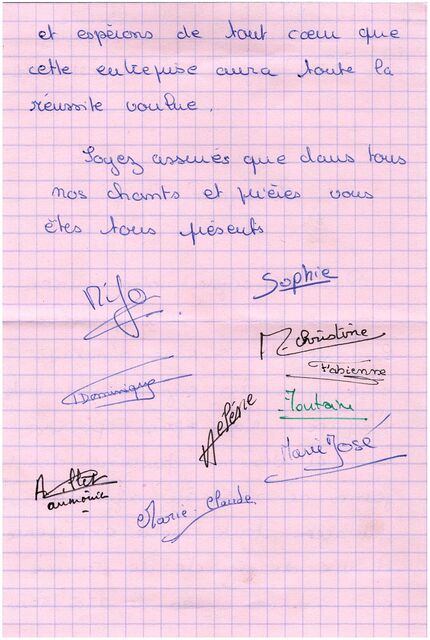 et espérons de tout cœur que
cette entrepise aura toute la
réussite voulue.
Soyez assurés que dans tous
nos chants et prières vous
êtes tous présents
Sophie
M. Christine
Fabienne
Dominique
Hélène
Marie José
aumônier
Marie-Claude